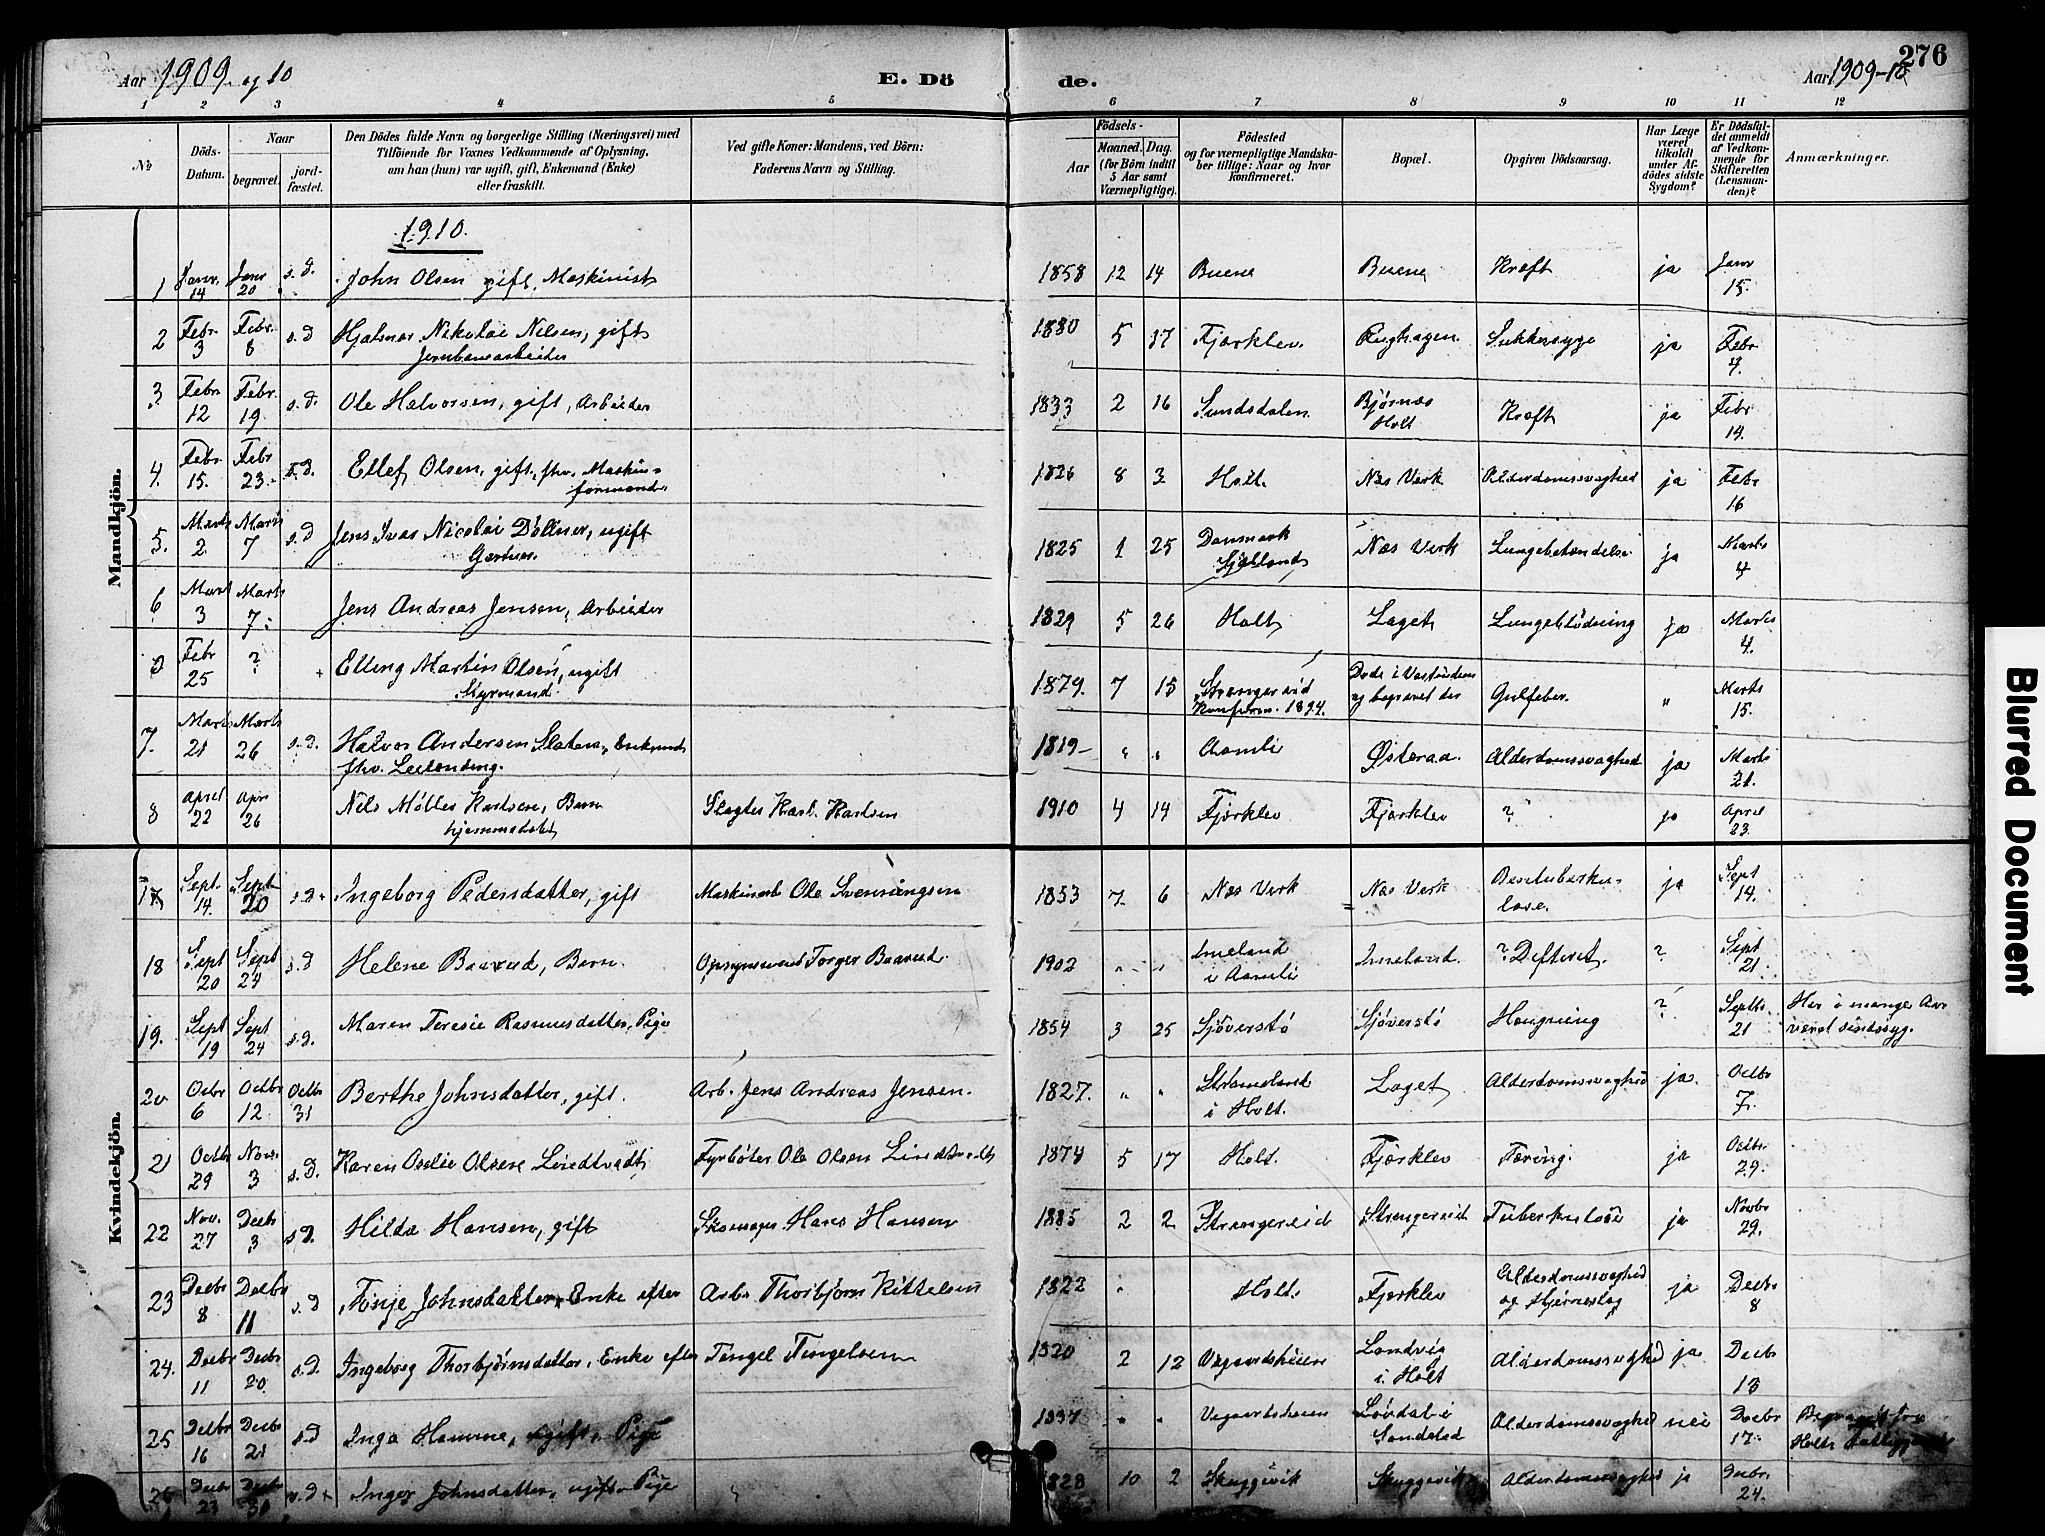 276
Aar 1909 og 10
E. Dö
de.
Aar 1909-10
1 2 3 4 5 6 7 8 9 10 11 12
No
Döds-Datum.
Naar
begravet.
jordfæstet.
Den Dödes fulde Navn og borgerlige Stilling (Næringsvei) med
Tilföiende for Voxnes Vedkommende af Oplysning,
om han (hun) var ugift, gift, Enkemand (Enke)
eller fraskilt.
Ved gifte Koner: Mandens, ved Börn:
Faderens Navn og Stilling.
Födsels-
Aar
Maaned. Dag.
(for Börn indtil
5 Aar samt
Værnepligtige).
Födested
og for værnepligtige Mandskaber tillige: Naar og hvor
konfirmeret.
Bopæl.
Opgiven Dödsaarsag.
Har Læge
været
tilkaldt
under Afdödes sidste
Sygdom?
Er Dödsfaldet anmeldt
af Vedkommende for
Skifteretten
(Lensmanden)?
Anmærkninger.
1910.
Mandkjön.
1 Janr. 14 Janr 20 s.d. John Olsen gift, Maskinist 1858 12 14 Buene Buene Kræft ja Janr 15.
2 Febr. 3 Febr. 8 s.d Hjalmar Nikolai Nilsen, gift Jernbanearbeider 1880 5 17 Fjærklev Rughagen Sukkersyge ja Febr 4.
3. Febr 12 Febr. 19 s.d. Ole Halvorsen, gift, Arbeider 1833 2 16 Sundsdalen Bjørnæs Holt Kræft ja Febr 14.
4. Febr 15. Febr 23. s.d. Ellef Olsen, gift, fhv. Maskinformand. 1826 8 3 Holt. Næs Værk Alderdomssvaghed ja Febr 16
5. Marts 2 Marts 7 s.d Jens Ivar Nicolai Döllner, ugift Gartner. 1825 1 25 Danmark Sjælland Næs Værk Lungebetændelse ja Marts 4
6 Mart 3 Marts 7. Jens Andreas Jensen, Arbeider 1829 5 26 Holt Laget Lungeblödning ja Marts 4.
Febr 25 ? Elling Martin Olsen, ugift Styrmand 1879. 7 15 Strengereid Konfirm. 1894. Döde i Vestindien og begravet der Gulfeber. " Marts 15.
7. Marts 21 Marts 26 s.d. Halvor Andersen Enkemd fhv. Leilending. 1819 " " Aamli Østeraa. Alderdomssvaghed ja Marts 21.
8 April 22 Apr 26 Nils Möller Karlsen, Barn hjemmedöbt Slagter Karl Karlsen 1910 4 14 Fjærklev Fjærklev ? ja April 23.
Kvindekjön.
17 Sept. 14. Sept 20 s.d. Ingeborg Pedersdatter, gift Maskinarb Ole Svenningsen 1853 7 6 Næs Værk Næs Værk Bentuberkulose. ja Sept 14.
18 Sept 20 Sept 24 s.d Helene Baarud, Barn. Opsynsmand Torger Baarud. 1902 " " Imeland i Aamli Imeland. ? Defterit. ? Sept 21
19. Sept 19 Sept 24 s.d. Maren Teresie Rasmusdatter, Pige 1854 3 25 Sjöverstö Sjöverstö Hængning ? Septb. 21 Har i mange Aar været sindssyg.
20 Octbr 6 Octbr 12 Octbr 31 Berthe Johnsdatter, gift. Arb. Jens Andreas Jensen. 1827. " " Strameland i Holt. Laget Alderdomssvaghed ja. Octbr 7.
21 Octbr 29 Novr. 3 s.d. Karen Oselie Olsen Lindtvedt Fyrböter Ole Olsen Lindtvedt 1874 5 17 Holt. Fjærklev Tæring. ja Octbr. 29.
22 Nov. 27 Decbr 3 s.d. Hilda Hansen, gift Skomager Hans Hansen 1885 2 2 Strengereid Strengereid Tuberkulose ja Novbr 29.
23 Decbr 8 Decbr 11 s.d Johnsdatter, Enke efter Arb. Thorbjörn Kittelsen 1822 " Holt. Fjærklev Alderdomssvaghed og Hjerneslag ja Decbr 8
24. Decbr 11 Decbr 20. s.d. Ingeborg Thorbjörnsdatter, Enke efter Tengel Tengelsen 1820 2 12 Vegaardsheien Landvig i Holt Alderdomssvaghed ja Decbr 13
25 Decbr 16 Decbr 21 s.d Inga Hamme, ugift, Pige 1837 " " Vegaardsheien Lövdal i Söndeled Alderdomssvaghed nei Decbr 17. Holts
26 Decbr 23 Decbr s.d. Inger Johnsdatter, ugift Pige 1828 10 2 Skuggevik Skuggevik Alderdomssvaghed ja Decbr. 24.
Blurred Document